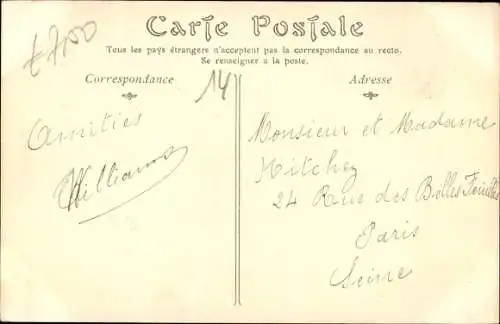 £7,50
Carte Postale
Tous les pays étrangers n'acceptent pas la correspondance au recto.
Se renseigner a la poste.
Correspondance
14
Adresse
Amitiés
Williams
Monsieur et Madame
Hitchez
24 Rue des Belles Feuilles
Paris
Seine